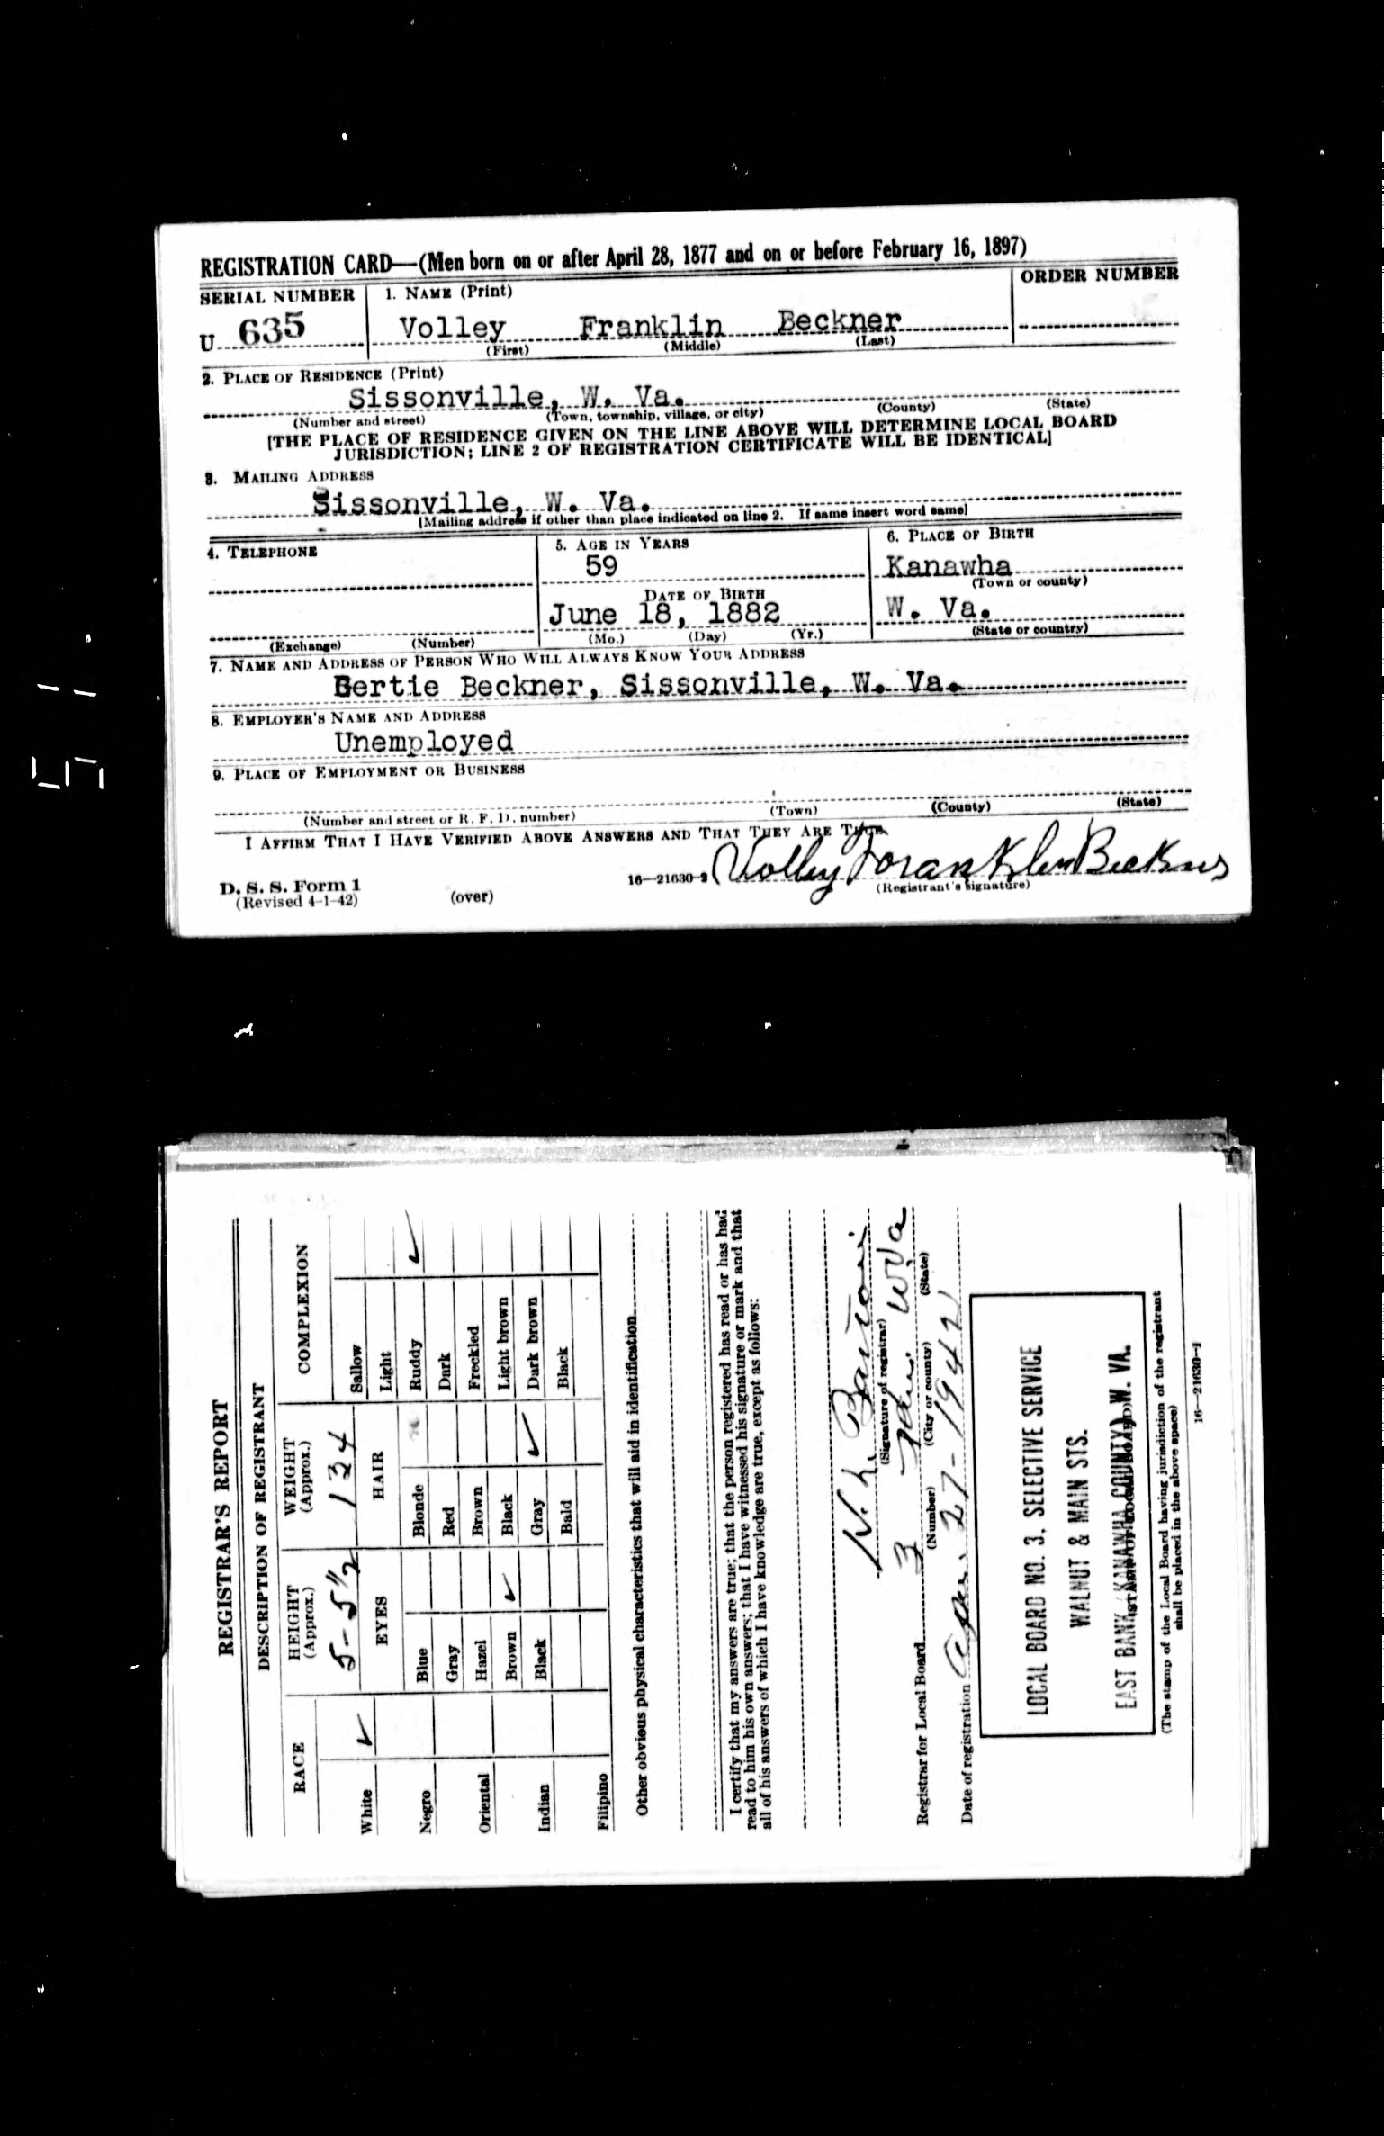 REGISTRATION CARD—(Men born on or after April 28, 1877 and on or before February 16, 1897)
SERIAL NUMBER
1. NAME (Print)
ORDER NUMBER
U 635
Volley Franklin Beckner
(First) (Middle) (Last)
2. PLACE OF RESIDENCE (Print)
Sissonville, W. Va.
(Number and street) (Town, township, village, or city) (County) (State)
[THE PLACE OF RESIDENCE GIVEN ON THE LINE ABOVE WILL DETERMINE LOCAL BOARD
JURISDICTION; LINE 2 OF REGISTRATION CERTIFICATE WILL BE IDENTICAL]
3. MAILING ADDRESS
Sissonville, W. Va.
[Mailing address if other than place indicated on line 2. If same insert word same]
4. TELEPHONE
5. AGE IN YEARS
6. PLACE OF BIRTH
59
Kanawha
(Town or county)
DATE OF BIRTH
June 18, 1882
W. Va.
(Exchange) (Number)
(Mo.) (Day) (Yr.)
(State or country)
7. NAME AND ADDRESS OF PERSON WHO WILL ALWAYS KNOW YOUR ADDRESS
Bertie Beckner, Sissonville, W. Va.
8. EMPLOYER'S NAME AND ADDRESS
Unemployed
9. PLACE OF EMPLOYMENT OR BUSINESS
(Number and street or R. F. D. number) (Town) (County) (State)
I AFFIRM THAT I HAVE VERIFIED ABOVE ANSWERS AND THAT THEY ARE TRUE.
Volley Franklin Beckner
D. S. S. Form 1
(Revised 4-1-42)
(over)
16—21630-2
(Registrant's signature)
REGISTRAR'S REPORT
DESCRIPTION OF REGISTRANT
RACE
HEIGHT
(Approx.)
WEIGHT
(Approx.)
COMPLEXION
5-5½
134
White ✓
Negro
Oriental
Indian
Filipino
EYES
Blue
Gray
Hazel
Brown ✓
Black
HAIR
Blonde
Red
Brown
Black
Gray ✓
Bald
Sallow
Light
Ruddy ✓
Dark
Freckled
Light brown
Dark brown
Black
Other obvious physical characteristics that will aid in identification
I certify that my answers are true; that the person registered has read or has had
read to him his own answers; that I have witnessed his signature or mark and that
all of his answers of which I have knowledge are true, except as follows:
(Signature of registrar)
Registrar for Local Board 3 W Va
(Number) (City or county) (State)
Date of registration Apr. 27-1942
LOCAL BOARD NO. 3, SELECTIVE SERVICE
WALNUT & MAIN STS.
EAST BANK (KANAWHA COUNTY) W. VA.
(STAMP OF LOCAL BOARD)
(The stamp of the Local Board having jurisdiction of the registrant
shall be placed in the above space)
16—21630-1